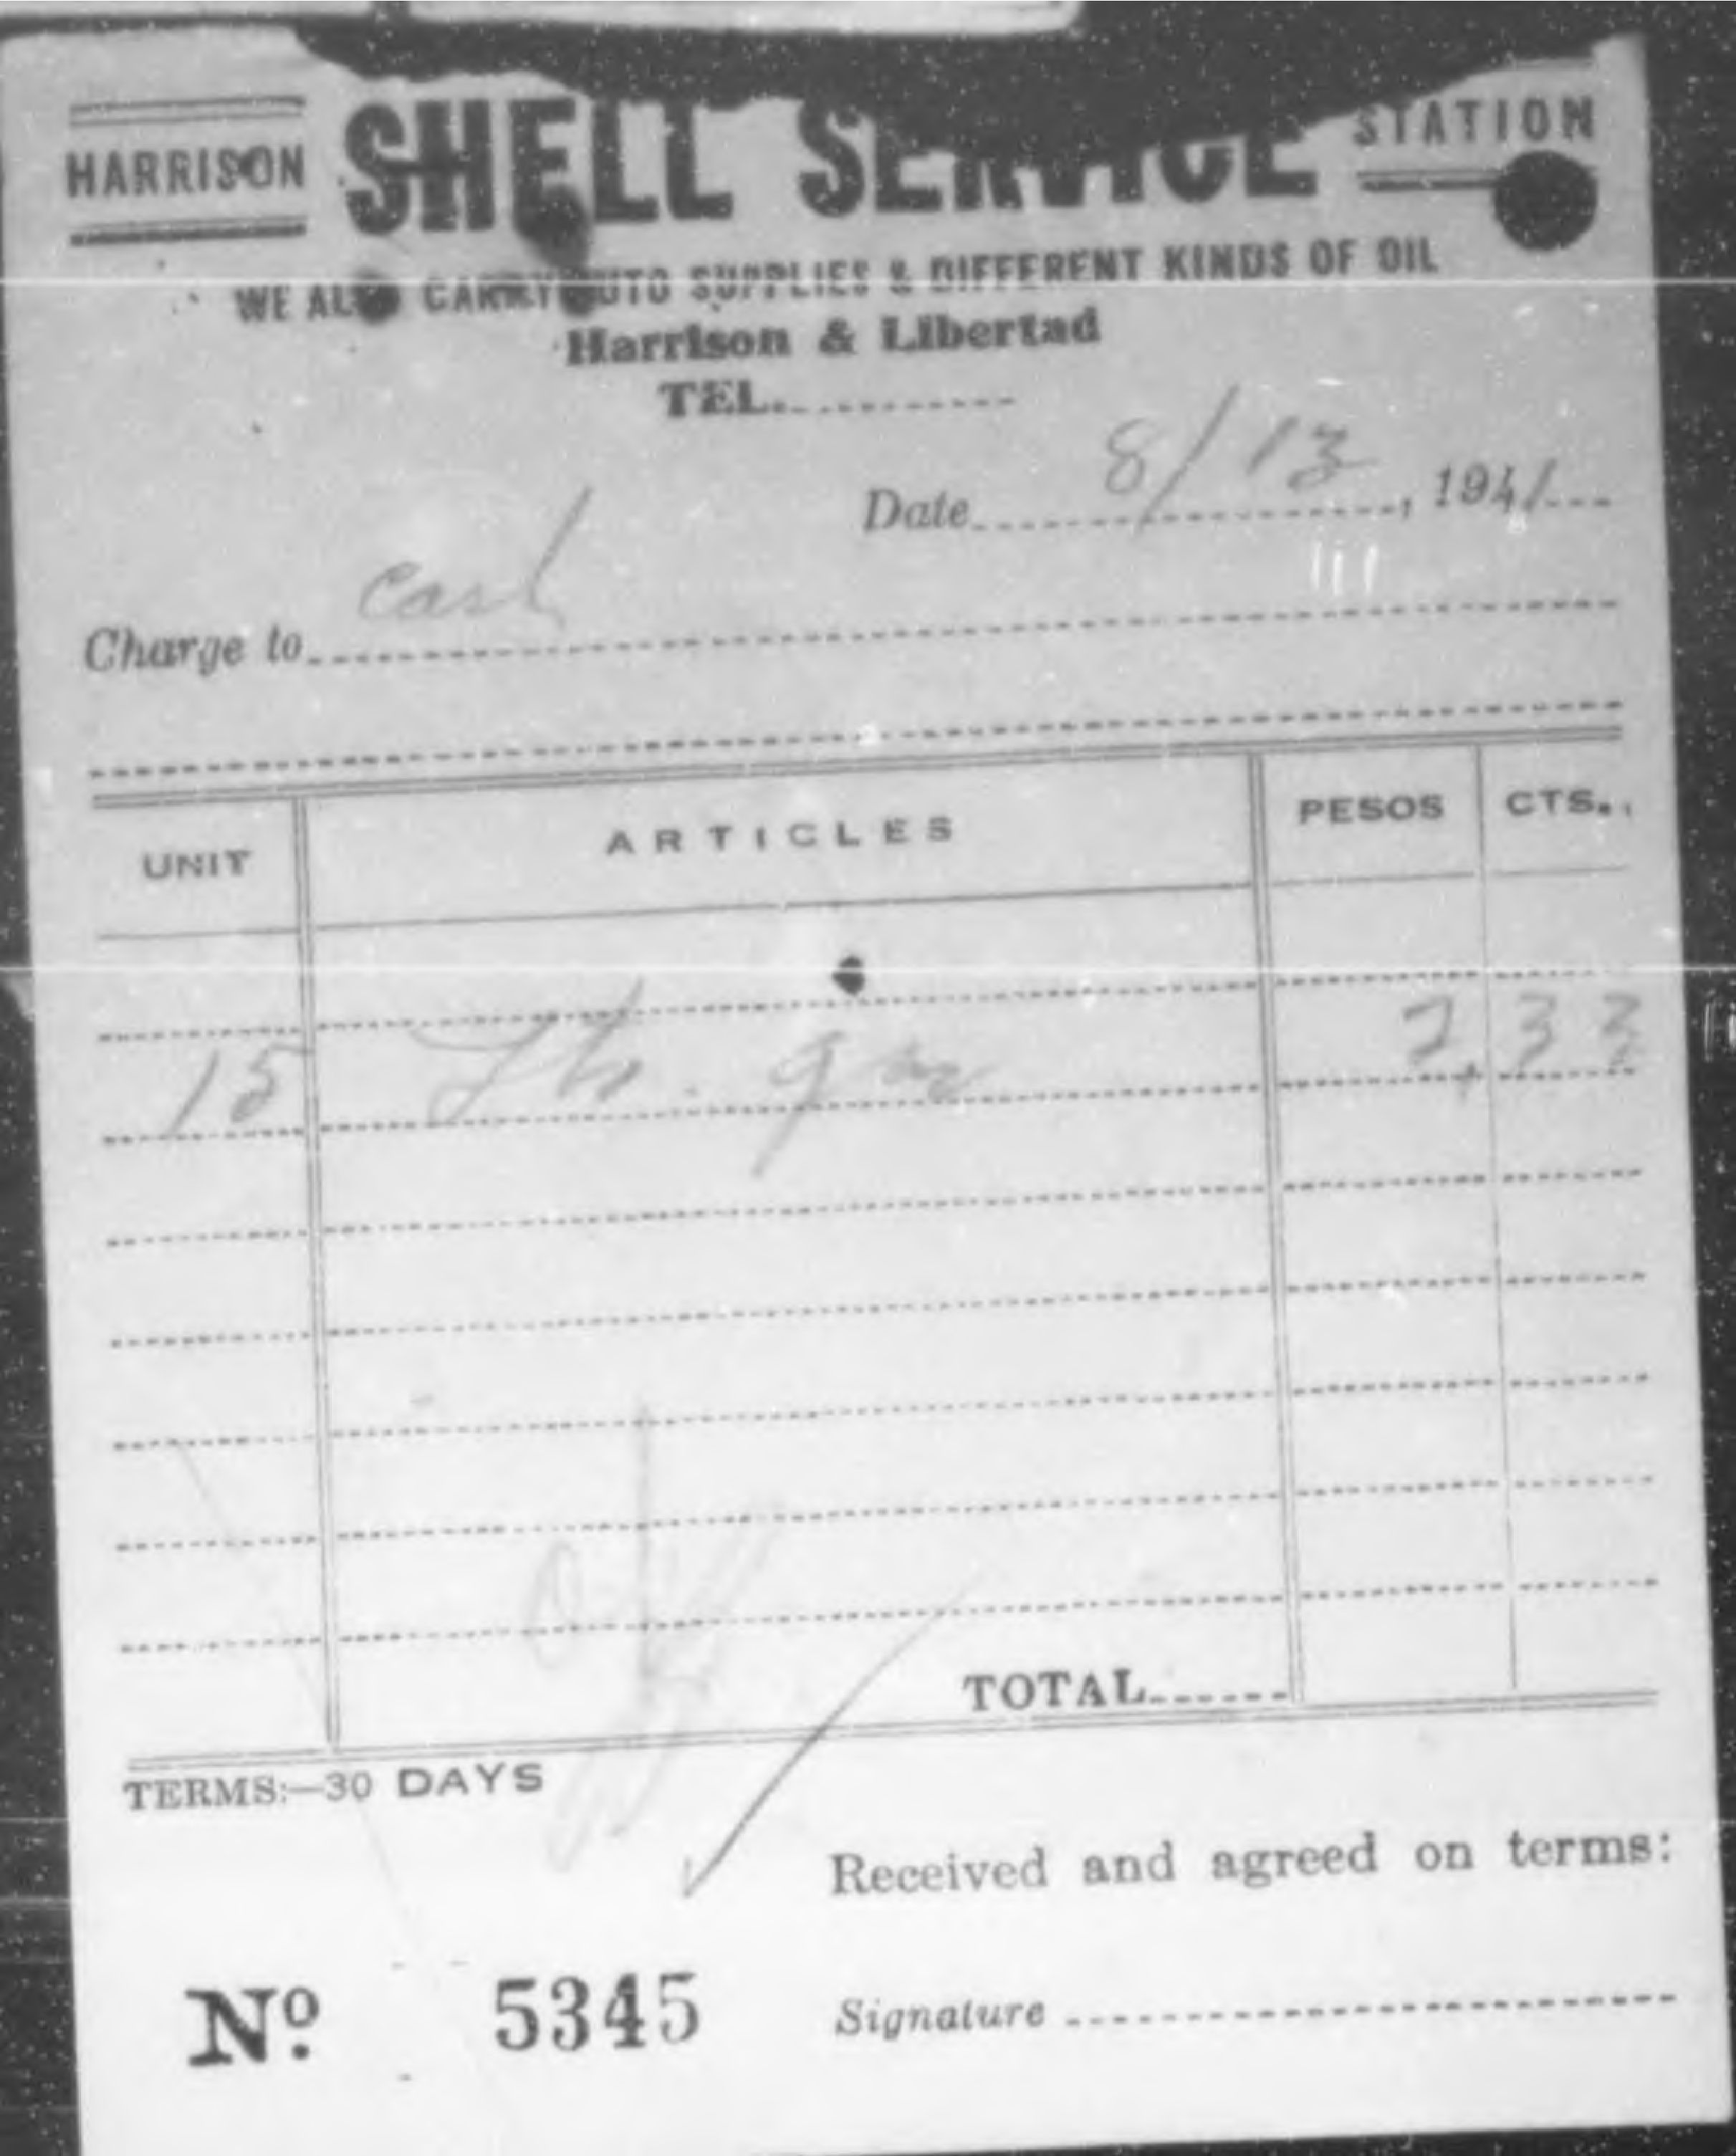 HARRISON SHELL SERVICE STATION
WE ALSO CARRY AUTO SUPPLIES & DIFFERENT KINDS OF OIL
Harrison & Libertad
TEL.
Date 8/13, 1941
Charge to cash
UNIT ARTICLES PESOS CTS.
15 Lts. gas 2.33
TOTAL
TERMS:—30 DAYS
Received and agreed on terms:
Nº 5345 Signature